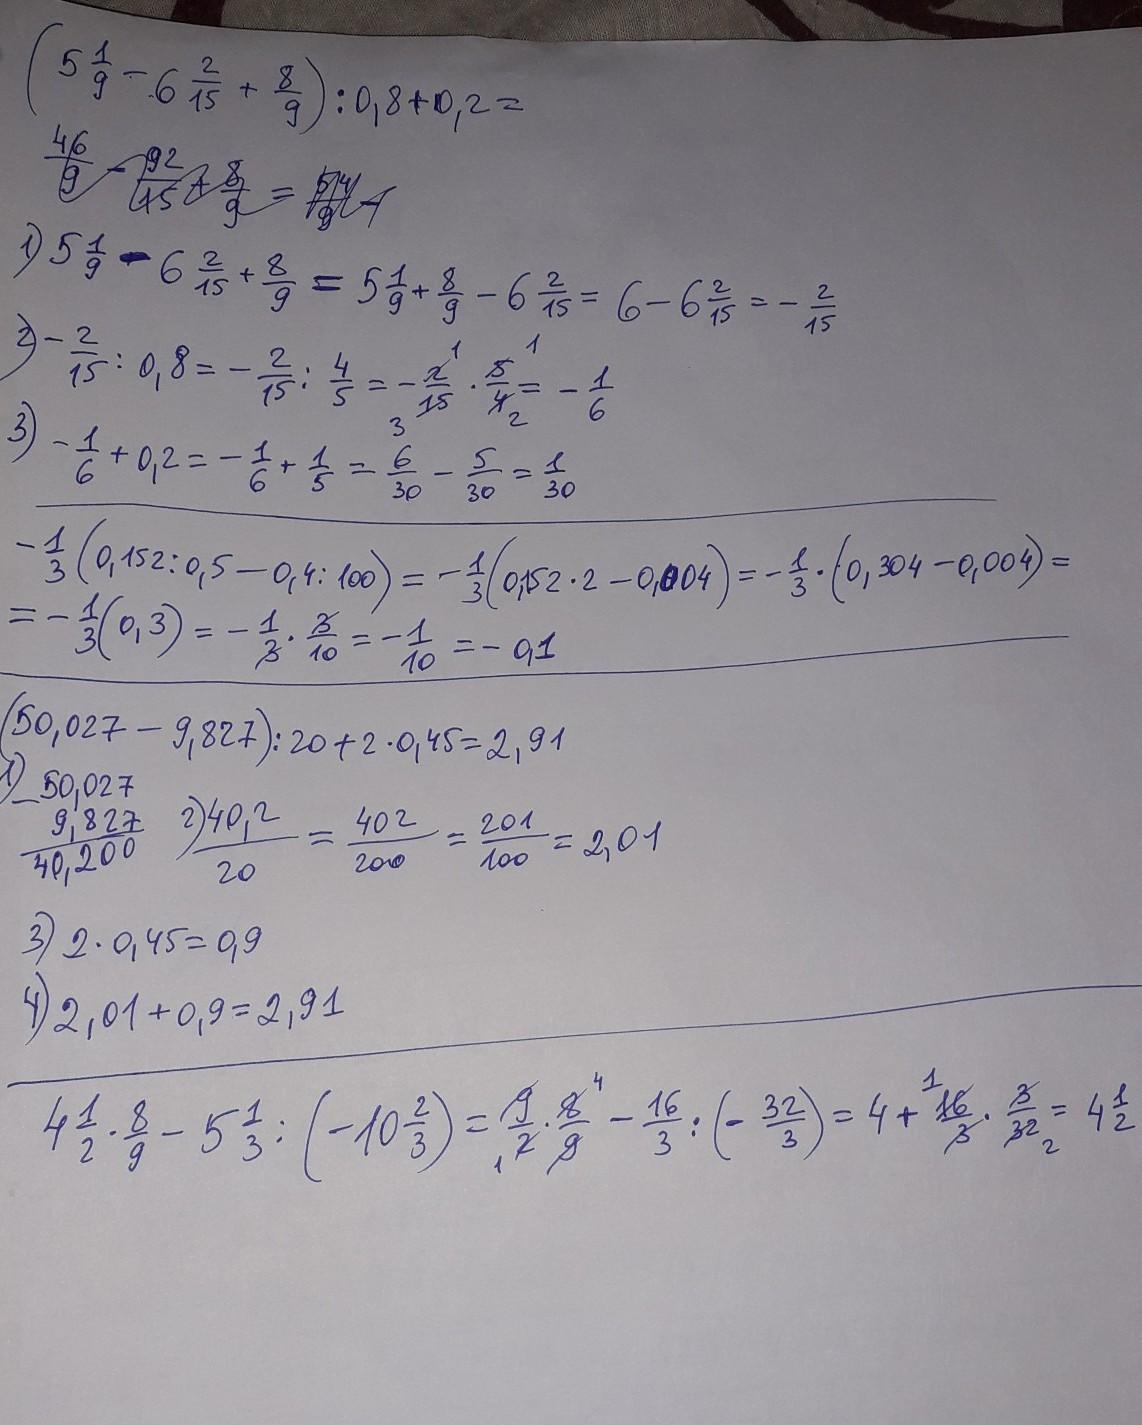 (5 1/9 − 6 2/15 + 8/9) : 0,8 + 0,2 =
46/9 − 92/15 + 8/9 =
1) 5 1/9 − 6 2/15 + 8/9 = 5 1/9 + 8/9 − 6 2/15 = 6 − 6 2/15 = − 2/15
2) − 2/15 : 0,8 = − 2/15 : 4/5 = − 2/15 · 5/4 = − 1/6
3) − 1/6 + 0,2 = − 1/6 + 1/5 = 6/30 − 5/30 = 1/30
− 1/3 (0,152 : 0,5 − 0,4 : 100) = − 1/3 (0,152 · 2 − 0,004) = − 1/3 · (0,304 − 0,004) =
= − 1/3 (0,3) = − 1/3 · 3/10 = − 1/10 = − 0,1
(50,027 − 9,827) : 20 + 2 · 0,45 = 2,91
1) − 50,027
9,827
40,200
2) 40,2/20 = 402/200 = 201/100 = 2,01
3) 2 · 0,45 = 0,9
4) 2,01 + 0,9 = 2,91
4 1/2 · 8/9 − 5 1/3 : (−10 2/3) = 9/2 · 8/9 − 16/3 : (− 32/3) = 4 + 16/3 · 3/32 = 4 1/2